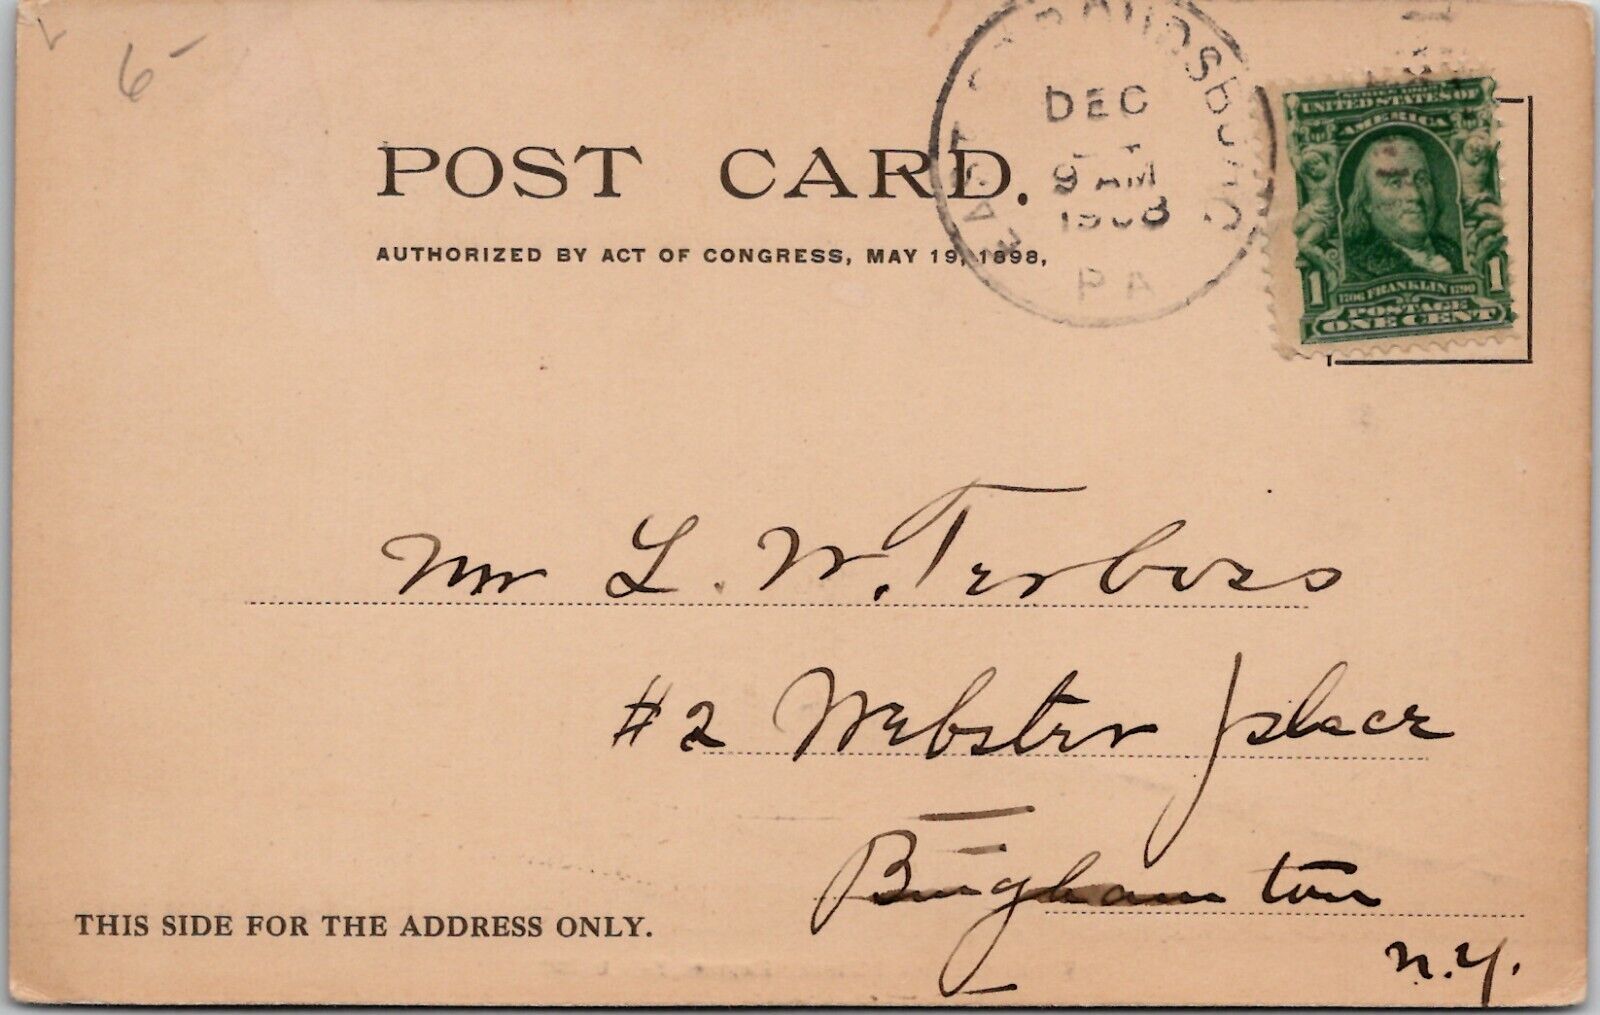 6-
EAST STROUDSBURG
DEC
9 AM
1908
PA
SERIES 1902
UNITED STATES OF
AMERICA
1706 FRANKLIN 1790
1 1
POSTAGE
ONE CENT
POST CARD.
AUTHORIZED BY ACT OF CONGRESS, MAY 19, 1898,
Mr L. W. Terboss
#2 Webster place
Binghamton
N.Y.
THIS SIDE FOR THE ADDRESS ONLY.